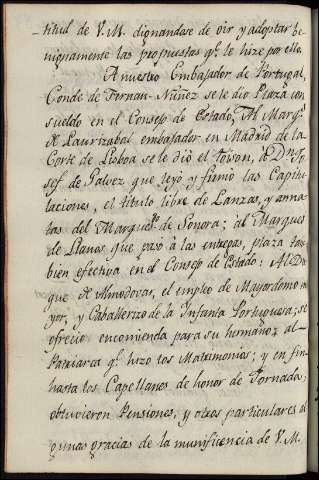 -titud de V.M. dignandose de oir y adoptar be-
nignamente las propuestas q.e le hize por ello.
A nuestro Embajador de Portugal,
Conde de Fernan-Nuñez se le dio Plaza con
sueldo en el Consejo de Estado; Al Marq.s
de Laurizabal embajador en Madrid de la
Corte de Lisboa se le dió el toison, A D.n Jo-
sef de Galvez que leyó y firmó las Capitu-
laciones, el titulo libre de Lanzas, y anna-
tas del Marques.do de Sonora; al Marques
de Llanos que pasó à las entregas, plaza tam-
bien efectiva en el Consejo de Estado: Al Du-
que de Almodovar, el empleo de Mayordomo ma-
yor, y Caballerizo de la Infanta Portuguesa; se
ofreció encomienda para su hermano; al
Patriarca q.e hizo los Matrimonios; y en fin
hasta los Capellanes de honor de Jornada,
obtuvieron Pensiones, y otros particulares al-
gunas gracias de la munificencia de V.M.